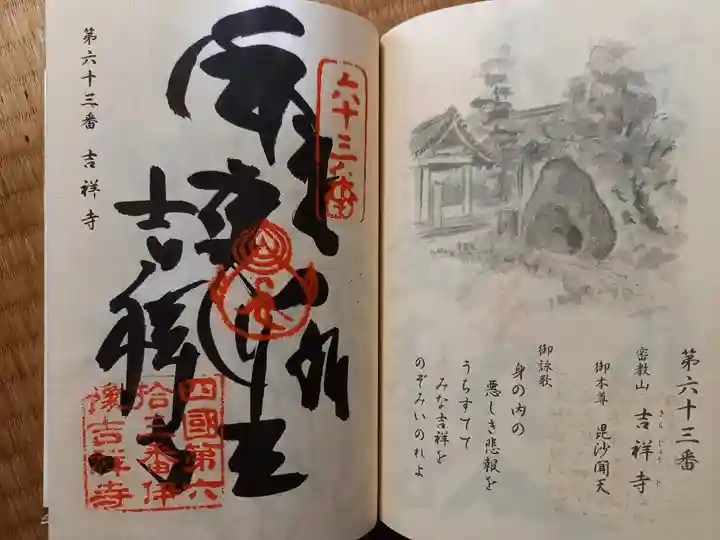 第六十三番
密教山 吉祥寺
きち じょう じ
御本尊 毘沙聞天
御詠歌
身の内の
悪しき悲報を
うちすてて
みな吉祥を
のぞみいのれよ
六十三番
吉祥寺
四國第六
拾三番伊
豫吉祥寺
第六十三番 吉祥寺